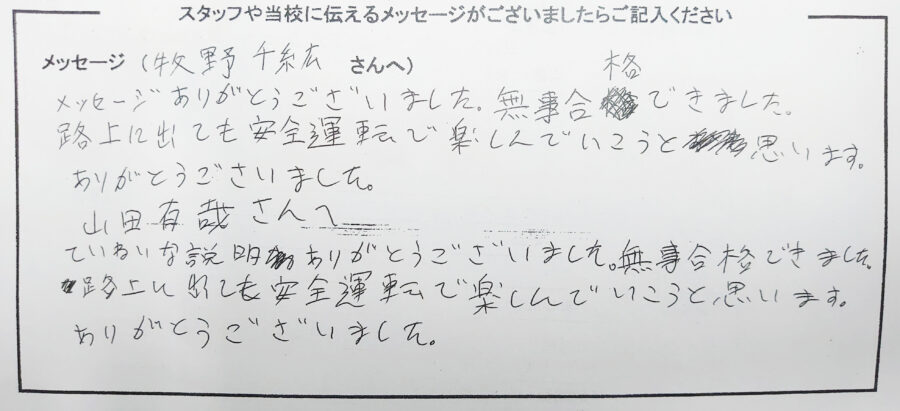 スタッフや当校に伝えるメッセージがございましたらご記入ください
メッセージ (牧野 千紘 さんへ)
メッセージありがとうございました。無事合格できました。
路上に出ても安全運転で楽しんでいこうと思います。
ありがとうございました。
山田有哉さんへ
ていねいな説明ありがとうございました。無事合格できました。
路上に出ても安全運転で楽しんでいこうと思います。
ありがとうございました。